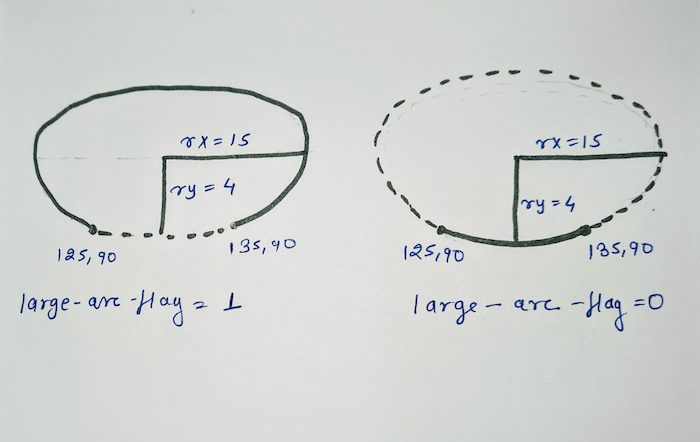 rx = 15
ry = 4
125,90
135,90
large-arc-flag = 1
rx = 15
ry = 4
125,90
135,90
large - arc - flag = 0